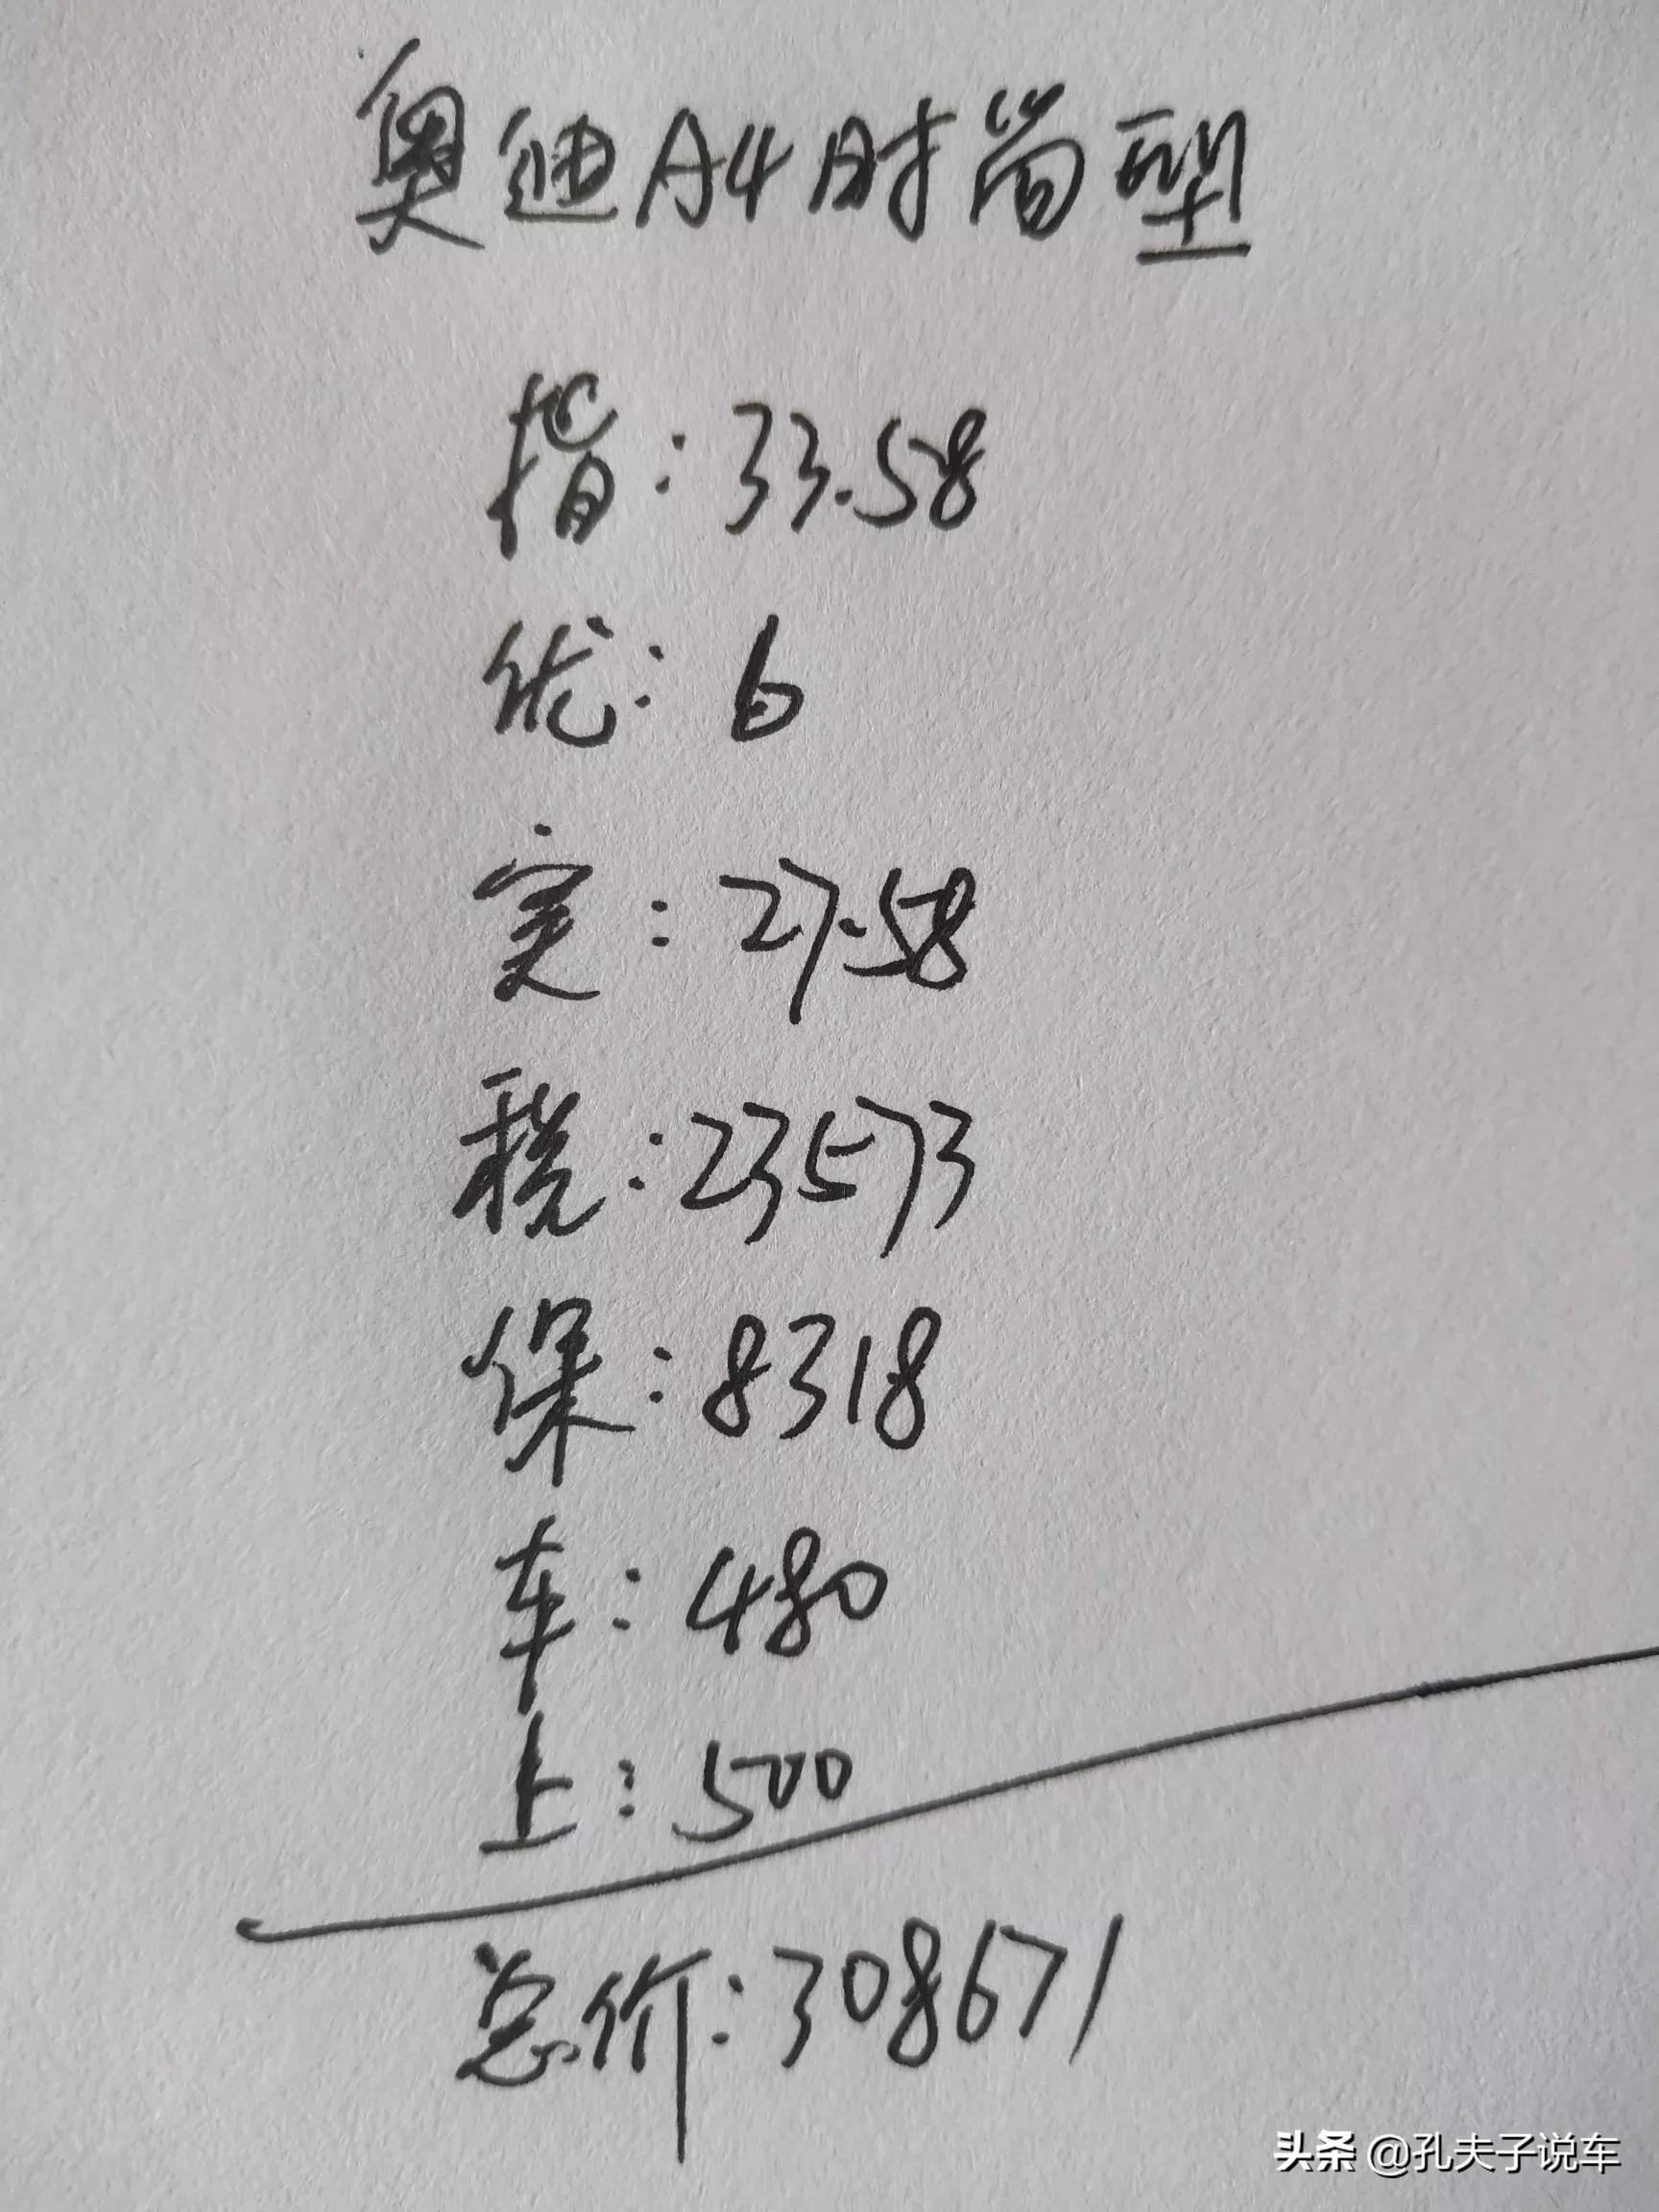 奥迪A4时尚型
指：33.58
优：6
实：27.58
税：23573
保：8318
车：480
上：500
总价：308671
头条 @孔夫子说车